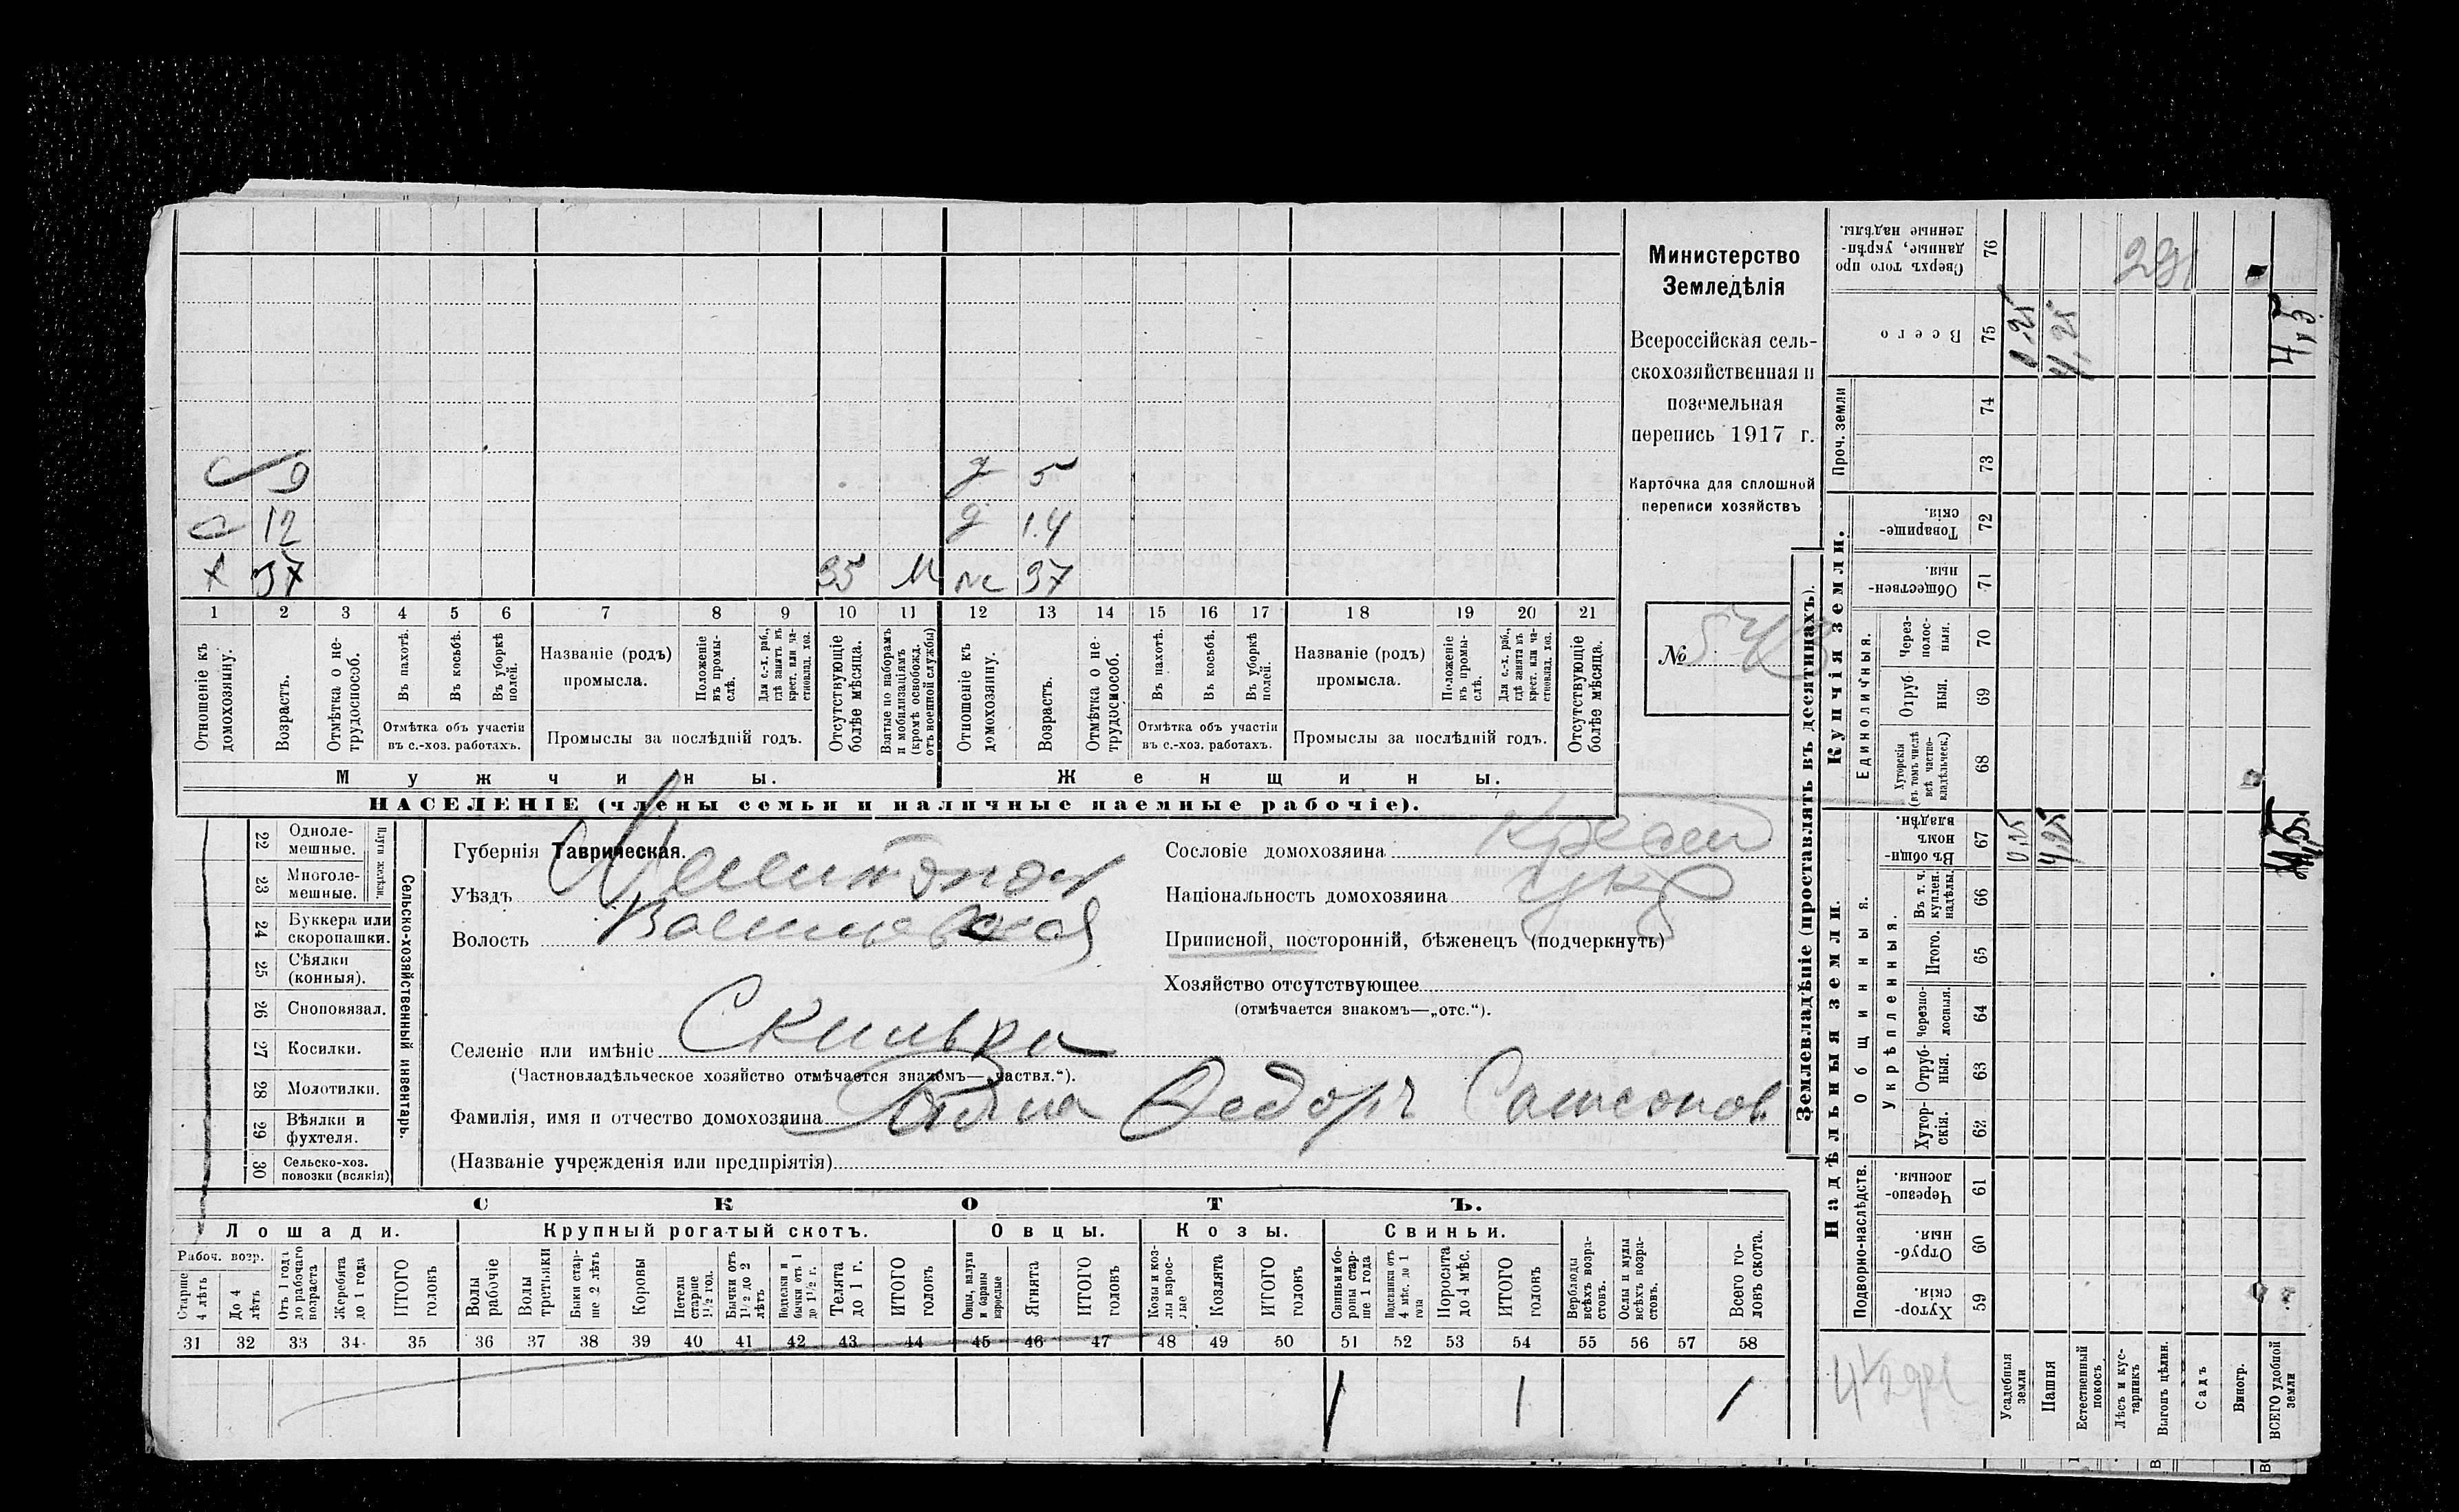 Министерство
Земледѣлія
Всероссійская сель-
скохозяйственная и
поземельная
перепись 1917 г.
Карточка для сплошной
переписи хозяйствъ
№ 543
с 9
с 12
х 37 35 М
д 5
д 14
ж 37
1 2 3 4 5 6 7 8 9 10 11 12 13 14 15 16 17 18 19 20 21
Отношеніе къ домохозяину.
Возрастъ.
Отмѣтка о не-трудоспособ.
Въ пахотѣ.
Въ косьбѣ.
Въ уборкѣ полей.
Отмѣтка объ участіи
въ с.-хоз. работахъ.
Названіе (родъ)
промысла.
Положеніе въ промы-слѣ.
Для с.-х. раб., гдѣ занятъ въ крест. или ча-стновлад. хоз.
Промыслы за послѣдній годъ.
Отсутствующіе болѣе мѣсяца.
Взятые по наборамъ и мобилизаціямъ (кромѣ освобожд. отъ военной службы)
Отношеніе къ домохозяину.
Возрастъ.
Отмѣтка о не-трудоспособ.
Въ пахотѣ.
Въ косьбѣ.
Въ уборкѣ полей.
Отмѣтка объ участіи
въ с.-хоз. работахъ.
Названіе (родъ)
промысла.
Положеніе въ промы-слѣ.
Для с.-х. раб., гдѣ занята въ крест. или ча-стновлад. хоз.
Промыслы за послѣдній годъ.
Отсутствующіе болѣе мѣсяца.
Мужчины.
Женщины.
НАСЕЛЕНІЕ (члены семьи и наличные наемные рабочіе).
22 Одноле-мешные.
23 Многоле-мешные.
24 Буккера или скоропашки.
25 Сѣялки (конныя).
26 Сноповязал.
27 Косилки.
28 Молотилки.
29 Вѣялки и фухтеля.
30 Сельско-хоз. повозки (всякія)
Сельско-хозяйственный инвентарь.
Губернія Таврическая.
Уѣздъ Мелитопол
Волость
Селеніе или имѣніе
(Частновладѣльческое хозяйство отмѣчается знакомъ—„частвл.“).
Фамилія, имя и отчество домохозяина Федоръ Самсонов
(Названіе учрежденія или предпріятія)
Сословіе домохозяина Крест
Національность домохозяина укр
Приписной, посторонній, бѣженецъ (подчеркнуть)
Хозяйство отсутствующее
(отмѣчается знакомъ—„отс.“).
СКОТЪ.
Лошади.
Крупный рогатый скотъ.
Овцы.
Козы.
Свиньи.
Рабоч. возр.
Старше 4 лѣтъ
До 4 лѣтъ
Отъ 1 года до рабочаго возраста
Жеребята до 1 года
ИТОГО головъ
Волы рабочіе
Волы третьяки
Быки стар-ше 2 лѣтъ
Коровы
Нетели старше 1½ год.
Бычки отъ 1½ до 2 лѣтъ
Телята до 1 г.
ИТОГО головъ
Овцы, валухи и бараны взрослые
Ягнята
ИТОГО головъ
Козы и коз-лы взрос-лые
Козлята
ИТОГО головъ
Свиньи и бо-ровы стар-ше 1 года
Подсвинки отъ 4 мѣс. до 1 года
Поросята до 4 мѣс.
ИТОГО головъ
Верблюды всѣхъ возра-стовъ.
Ослы и мулы всѣхъ возра-стовъ.
Всего го-ловъ скота.
31 32 33 34 35 36 37 38 39 40 41 42 43 44 45 46 47 48 49 50 51 52 53 54 55 56 57 58
1 1 1
Землевладѣніе (проставлять въ десятинахъ).
Надѣльныя земли.
Купчія земли.
Проч. земли
Сверхъ того про-данные, укрѣп-ленные надѣлы. 76
Всего 75 0,25 4,25
74
73
Товарище-скія. 72
Обществен-ныя. 71
Единоличныя.
Через-полос-ныя. 70
Отруб-ныя. 69
Хуторскія (въ томъ числѣ всѣ частно-владѣльческ.) 68
Въ общин-номъ владѣн. 67 0,25 4,25
Общинныя.
Укрѣпленныя.
Въ т. ч. куплен. надѣлы. 66
Итого. 65
Черезпо-лосныя. 64
Отруб-ныя. 63
Хутор-скія. 62
Подворно-наслѣдств.
Черезпо-лосныя. 61
Отруб-ныя. 60
Хутор-скія. 59
4½ дес
Усадебныя земли
Пашня
Естественный покосъ
Лѣсъ и кус-тарникъ
Выгонъ цѣлин.
Садъ
Виногр.
ВСЕГО удобной земли